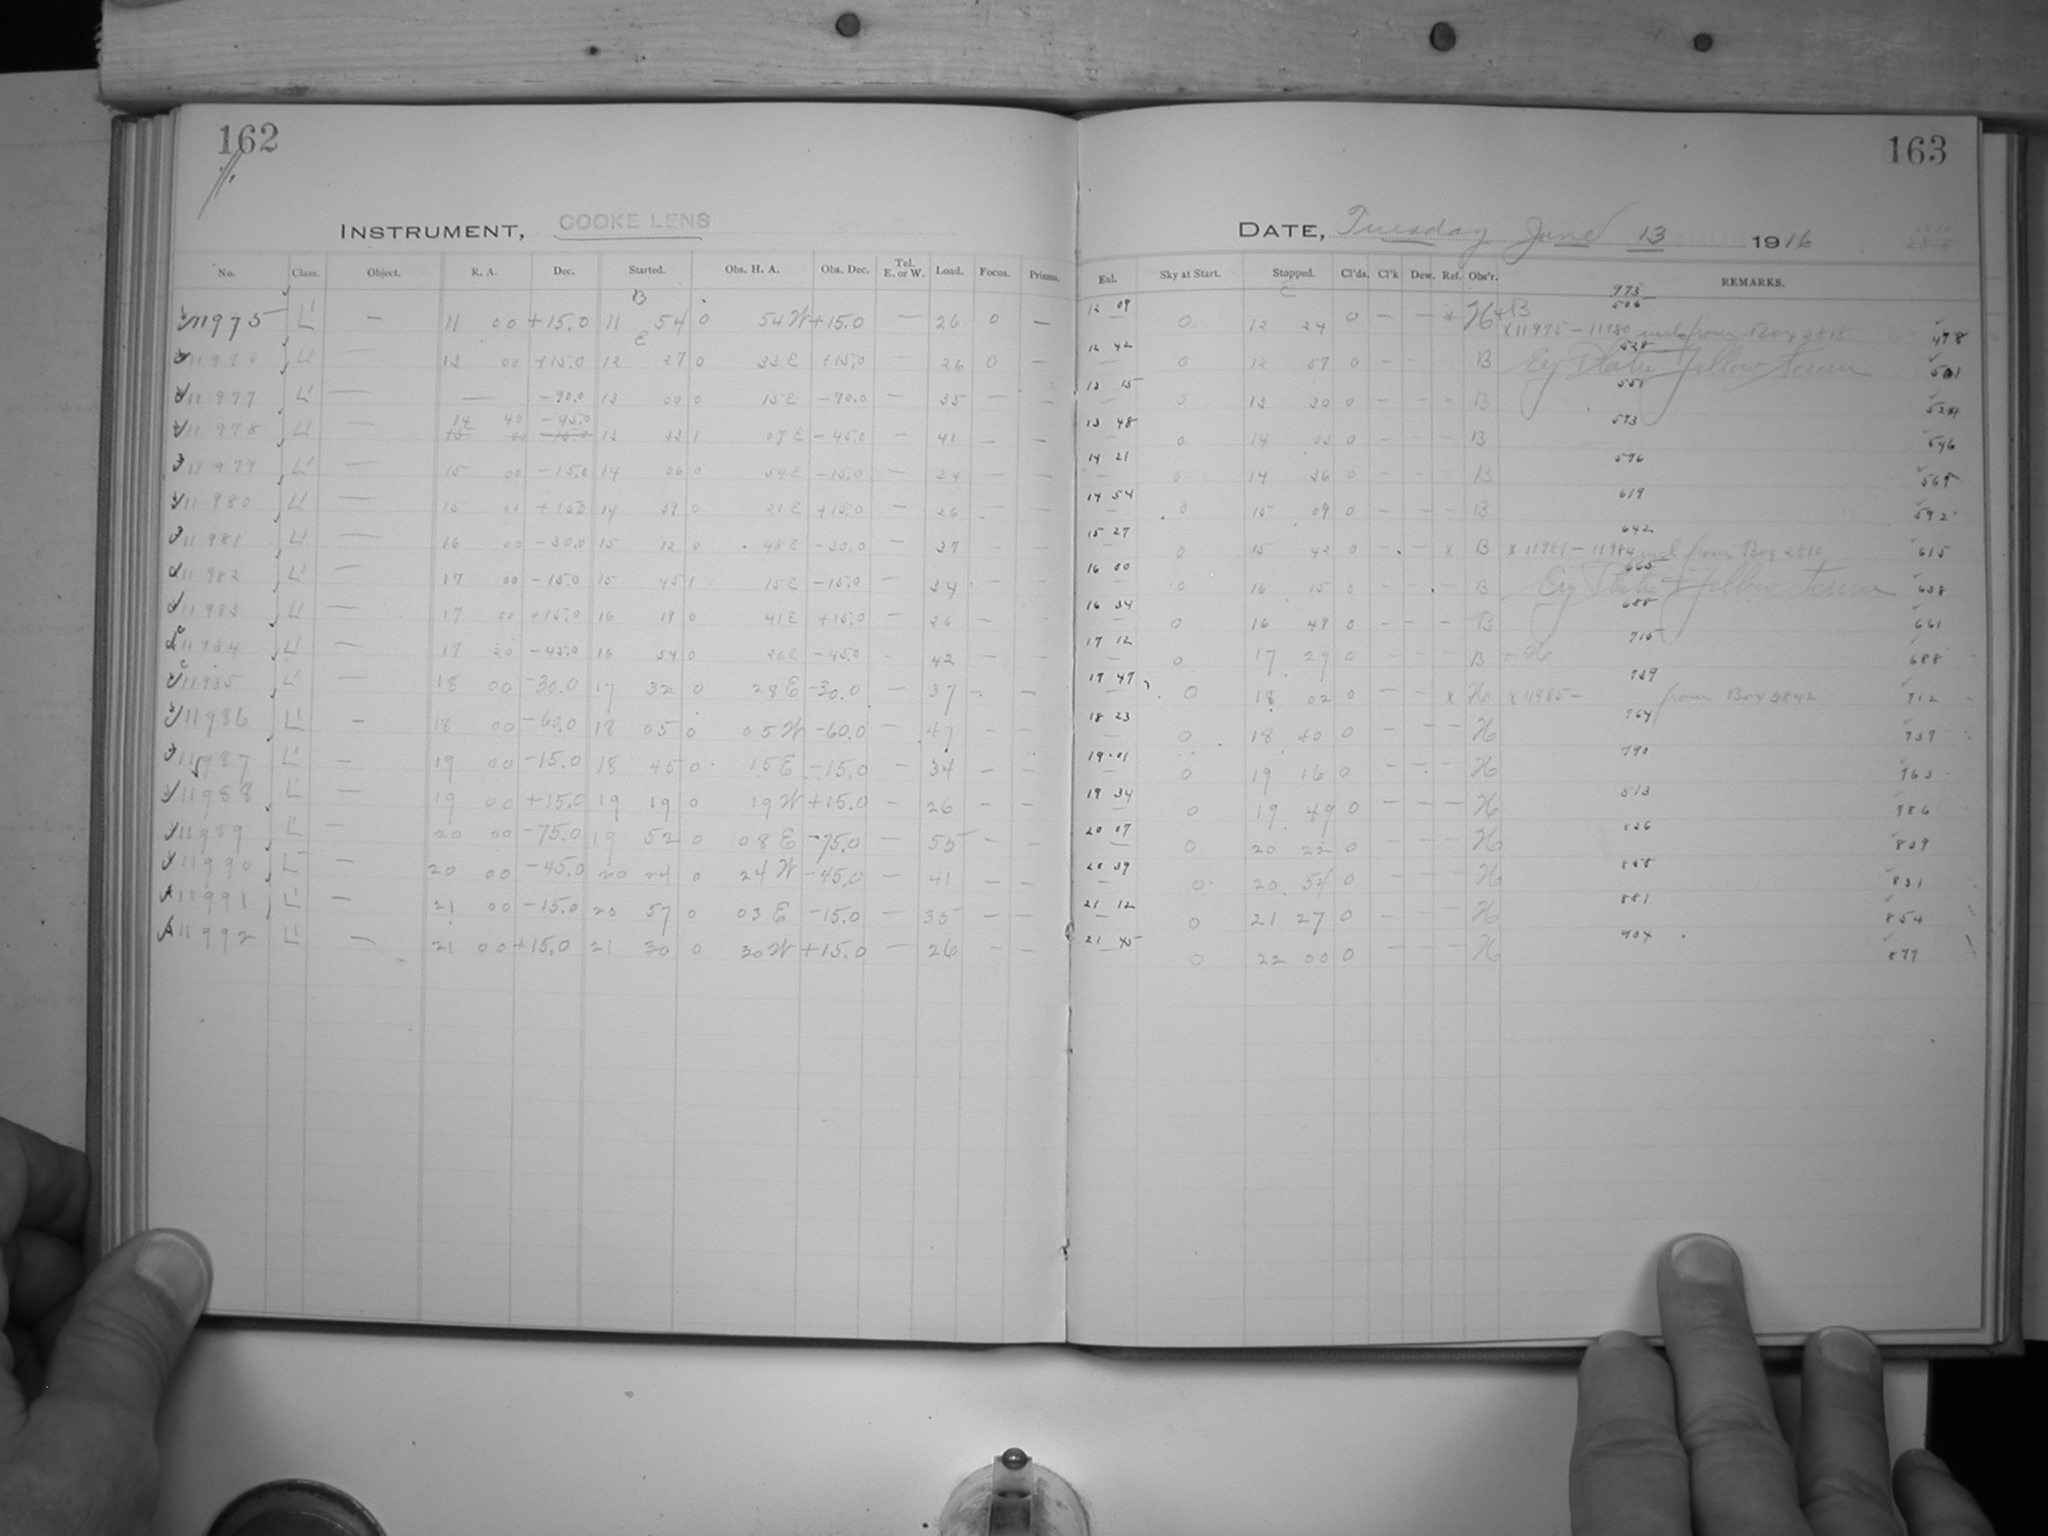 162
163
INSTRUMENT, COOKE LENS
DATE, Tuesday June 13 1916
No. Class. Object. R. A. Dec. Started. Obs. H. A. Obs. Dec. Tel. E. or W. Load. Focus. Prisms.
Enl. Sky at Start. Stopped. Cl'ds. Cl'k Dew. Ref. Obs'r. REMARKS.
11975 L' — 11 00 +15.0 11 54 0 54 W +15.0 — 26 0 — 12 09 0 12 24 0 — — x H+B 506 498
x 11975 – 11980 incl from Box 2818
L' — 13 00 +15.0 12 27 0 33 E +15.0 — 26 0 — 12 42 0 12 57 0 — — B 528 501
Yellow Screen
11977 L' — — -90.0 13 00 0 15 E -90.0 — 35 — — 13 15 0 13 30 0 — — — B 551 524
14 40 -45.0
11978 L' — 13 33 1 07 E -45.0 — 41 — — 13 48 0 14 03 0 — — — B 573 546
11979 L' — 15 00 -15.0 14 06 0 54 E -15.0 — 34 — — 14 21 0 14 36 0 — — — B 596 569
11980 L' — 15 00 +15.0 14 39 0 21 E +15.0 — 26 — — 14 54 0 15 09 0 — — — B 619 592
11981 L' — 16 00 -30.0 15 12 0 48 E -30.0 — 37 — — 15 27 0 15 42 0 — — x B 642 615
x 11981 – 11984 incl from Box 2810
11982 L' — 17 00 -15.0 15 45 1 15 E -15.0 — 34 — — 16 00 0 16 15 0 — — B 665 638
Yellow Screen
11983 L' — 17 00 +15.0 16 19 0 41 E +15.0 — 26 — — 16 34 0 16 49 0 — — — B 688 661
11984 L' — 17 20 -45.0 16 54 0 26 E -45.0 — 42 — — 17 12 0 17 29 0 — — — B + H 715 688
11985 L' — 18 00 -30.0 17 32 0 28 E -30.0 — 37 — — 17 47 0 18 02 0 — — x H x 11985 – from Box 2842 739 712
11986 L' — 18 00 -60.0 18 05 0 05 W -60.0 — 47 — — 18 23 0 18 40 0 — — — H 764 737
11987 L' — 19 00 -15.0 18 45 0 15 E -15.0 — 34 — — 19 01 0 19 16 0 — — — H 790 763
11988 L' — 19 00 +15.0 19 19 0 19 W +15.0 — 26 — — 19 34 0 19 49 0 — — — H 813 786
11989 L' — 20 00 -75.0 19 52 0 08 E -75.0 — 55 — — 20 07 0 20 22 0 — — — H 836 809
11990 L' — 20 00 -45.0 20 24 0 24 W -45.0 — 41 — — 20 39 0 20 54 0 — — — H 858 831
11991 L' — 21 00 -15.0 20 57 0 03 E -15.0 — 35 — — 21 12 0 21 27 0 — — — H 881 854
11992 L' — 21 00 +15.0 21 30 0 30 W +15.0 — 26 — — 21 45 0 22 00 0 — — — H 904 877